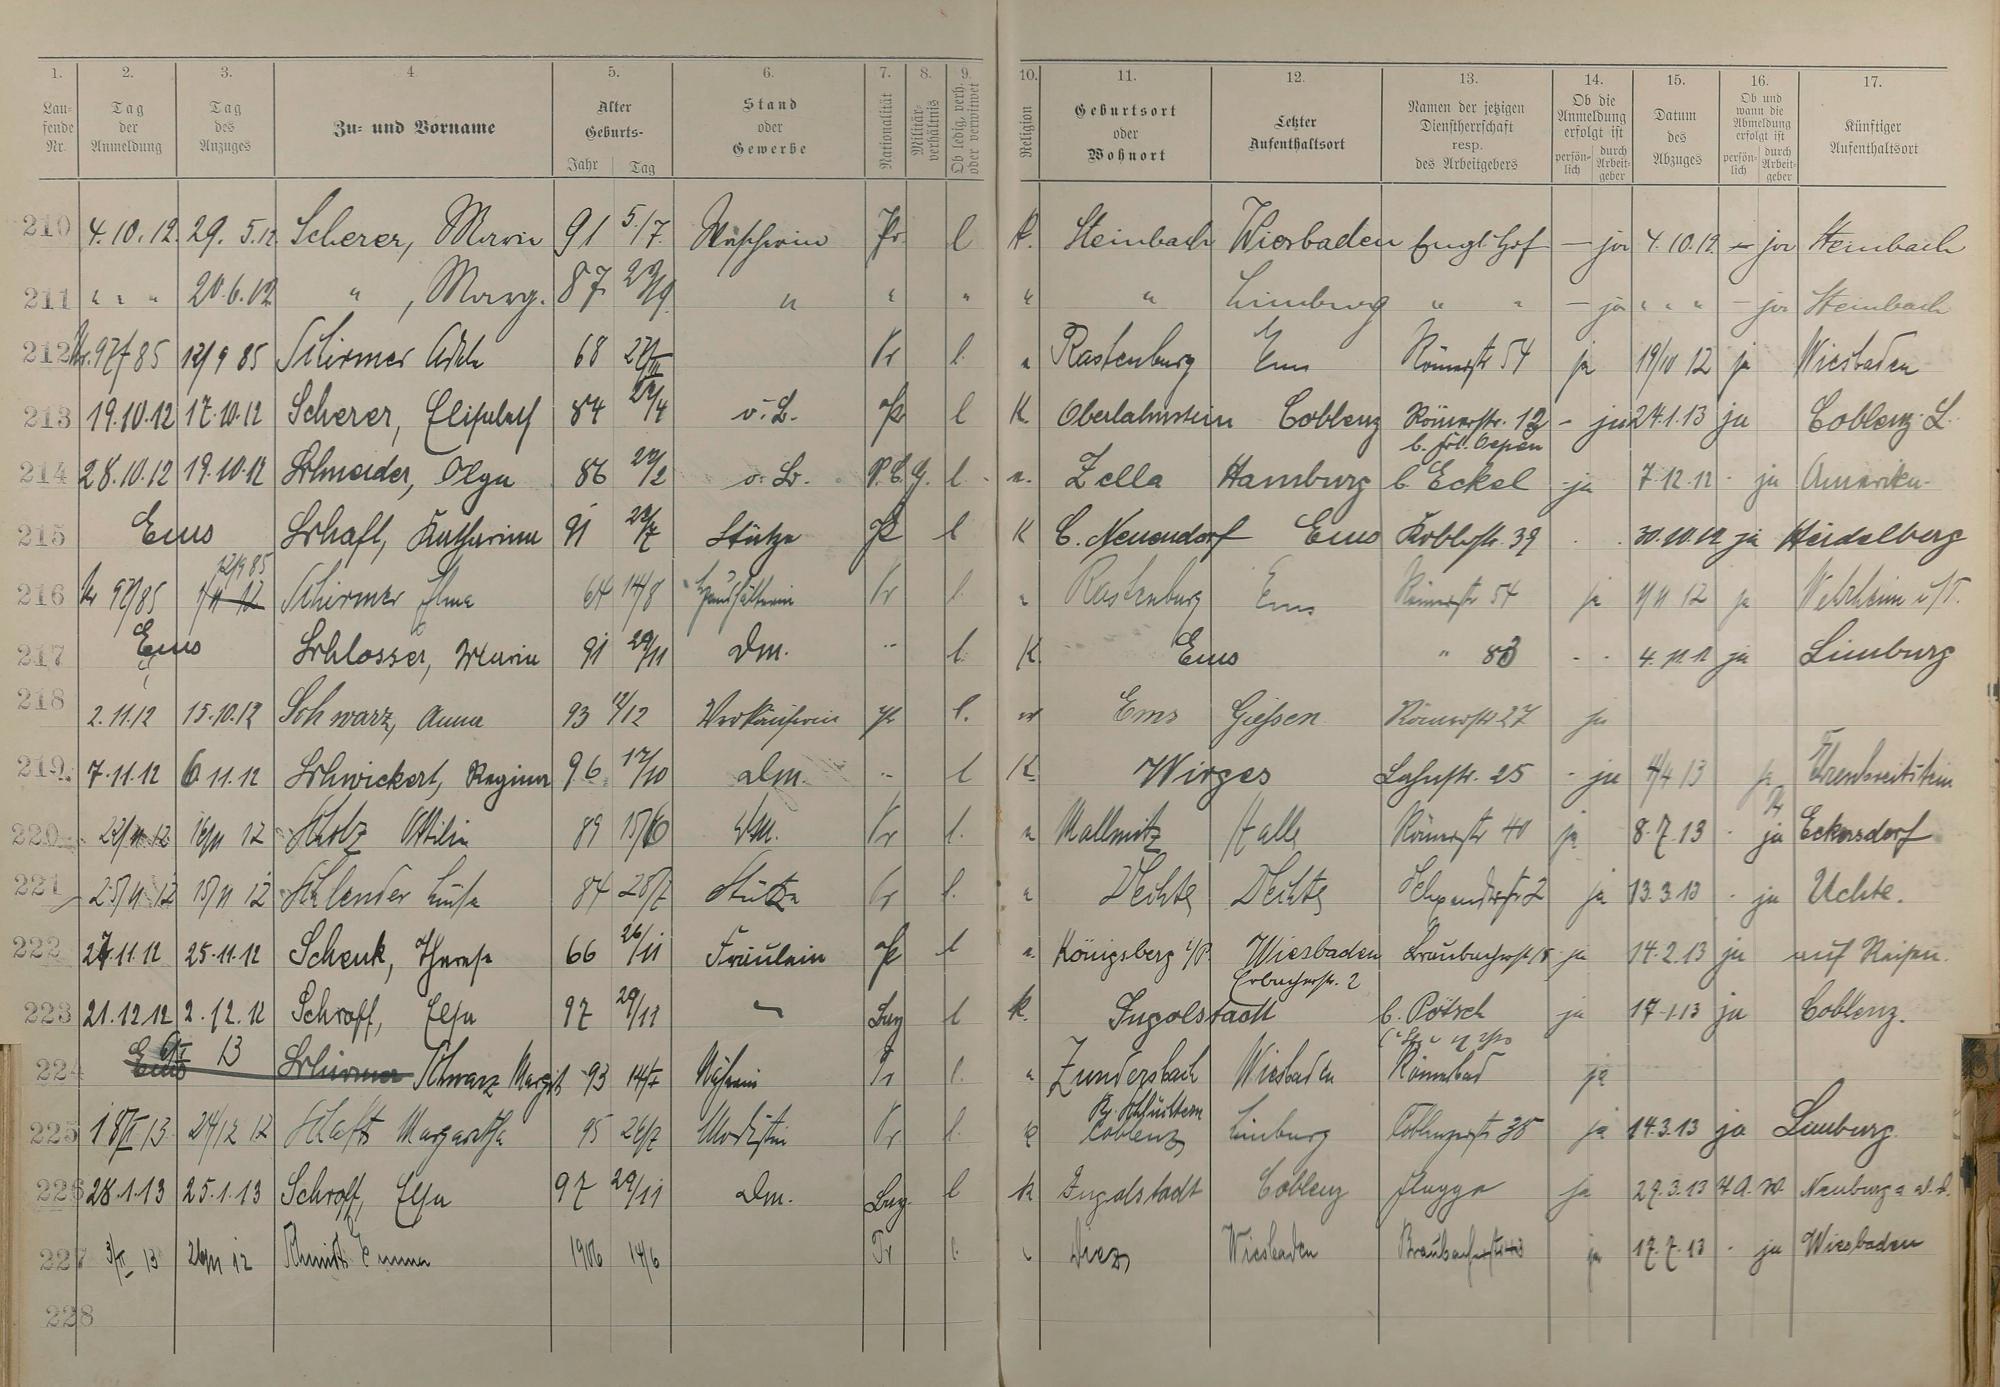 1. 2. 3. 4 5. 6. 7. 8. 9. 10. 11. 12. 13. 14. 15. 16. 17.
Lau-fende Nr. Tag der Anmeldung Tag des Anzuges Zu- und Vorname Alter Geburts- Jahr Tag Stand oder Gewerbe Nationalität Militär-verhältnis Ob ledig, verh. oder verwitwet Religion Geburtsort oder Wohnort Letzter Aufenthaltsort Namen der jetzigen Dienstherrschaft resp. des Arbeitgebers Ob die Anmeldung erfolgt ist persön-lich durch Arbeit-geber Datum des Abzuges Ob und wann die Abmeldung erfolgt ist persön-lich durch Arbeit-geber Künftiger Aufenthaltsort
210 4.10.12. 29.5.12 Scherer, Marie 91 5/7. Wäscherin Pr. l K. Steinbach Wiesbaden Engl. Hof – ja 4.10.12. – ja Steinbach
211 " " " 20.6.12 " , Marg. 87 29/9. " " " " " Limburg " " – ja " " " – ja Steinbach
212 97/85 12/9 85 Schirmer 68 Pr l. " Rastenburg Ems Römerstr 54 ja 19/10 12 ja Wiesbaden
213 19.10.12 17.10.12 Scherer, Elisabeth 84 o. B. Pr l K Oberlahnstein Coblenz Römerstr. 12 – ja 24.1.13 ja Coblenz-L.
b. Frl. Oepen
214 28.10.12 19.10.12 Schneider, Olga 86 o. B. l. Zella Hamburg b. Eckel - ja 7.12.12 - ja Amerika
215 Ems Schaft, Katharina 91 Stütze Pr l K C. Neuendorf Ems Koblstr. 39 30.10.12 ja Heidelberg
12/9 85
216 97/85 1/11 12 Schirmer 64 14/8 Haushälterin Pr l. " Rastenburg Ems Römerstr 54 ja 1/11 12 ja Wehrheim i/T.
217 Ems Schlosser, Maria 91 29/11 Dm. " l. K. Ems " 83 - - 4.11.12 ja Limburg
218 2.11.12 15.10.12 Schwarz, Anna 93 Verkäuferin Pr l. Ems Giessen Römerstr 27 ja
219. 7.11.12 6.11.12 Schwickert, Regina 96 17/10 Dm. " l K. Wirges Lahnstr. 25 - ja 4/4 13 ja Ehrenbreitstein
220 16/11 12 Scholz Ottilie 89 Dm. Pr l. " Mallmitz Halle Römerstr 40 ja 8.7.13 - ja Eckersdorf
221 25/11 12 15/11 12 84 28/7 Stütze Pr l. " ja 13.3.13 - ja Uchte.
222 27.11.12 25.11.12 Schenk, Therese 66 26/11 Fräulein Pr l " Königsberg i/P. Wiesbaden Braubacherstr 18 - ja 14.2.13 ja auf Reisen.
Erbacherstr. 2
223 21.12.12 2.12.12 Schroff, Elsa 97 29/11 – Bay l k. Ingolstadt b. Pötsch ja 17.1.13 ja Coblenz.
224 Ems 13 Schirmer Schwarz Margit 93 Näherin Pr l. " Zundersbach Wiesbaden Römerbad ja
Kr. Schlüchtern
225 13 24/12 12 Schaft Margaretha 95 26/7 Modistin Pr l. Coblenz Limburg Coblenzerstr 38 ja 14.3.13 ja Limburg.
226 28.1.13 25.1.13 Schroff, Elsa 97 29/11 Dm. Bay. l k Ingolstadt Coblenz Flugge ja 29.3.13 Neuburg a. d. D.
227 13 12 Schmidt Emma 1906 14/6 Pr l. Diez Wiesbaden ja 17.7.13 - ja Wiesbaden
228